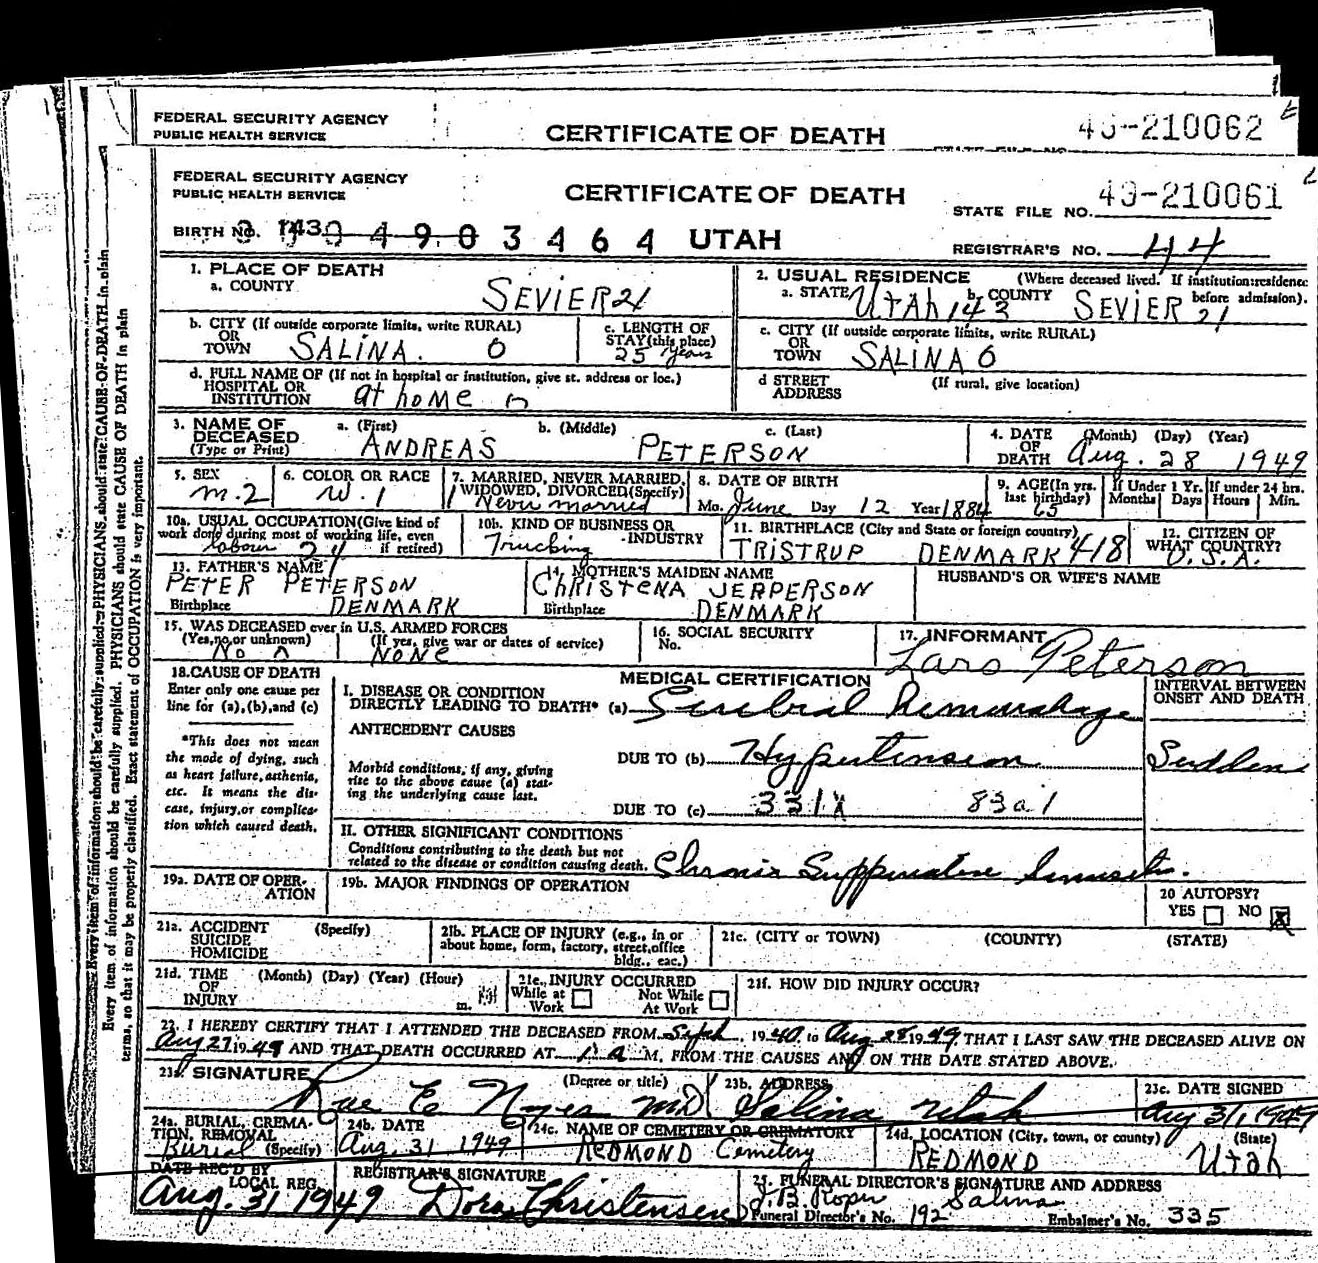 FEDERAL SECURITY AGENCY
PUBLIC HEALTH SERVICE
CERTIFICATE OF DEATH
210062
FEDERAL SECURITY AGENCY
PUBLIC HEALTH SERVICE
CERTIFICATE OF DEATH
STATE FILE NO. 49-210061
BIRTH NO. 143 0 4 9 0 3 4 6 4 UTAH
REGISTRAR'S NO. 44
1. PLACE OF DEATH
a. COUNTY SEVIER 21
2. USUAL RESIDENCE (Where deceased lived. If institution: residence before admission).
a. STATE UTAH 143 b. COUNTY SEVIER 21
b. CITY (If outside corporate limits, write RURAL)
OR
TOWN SALINA. 0
c. LENGTH OF
STAY (this place)
25 years
c. CITY (If outside corporate limits, write RURAL)
OR
TOWN SALINA 0
d. FULL NAME OF (If not in hospital or institution, give st. address or loc.)
HOSPITAL OR
INSTITUTION at home
d STREET
ADDRESS
(If rural, give location)
3. NAME OF
DECEASED
(Type or Print)
a. (First) b. (Middle) c. (Last)
ANDREAS PETERSON
4. DATE
OF
DEATH
(Month) (Day) (Year)
Aug. 28 1949
5. SEX
m. 2
6. COLOR OR RACE
W. 1
7. MARRIED, NEVER MARRIED,
WIDOWED, DIVORCED (Specify)
1 Never married
8. DATE OF BIRTH
Mo. June Day 12 Year 1884
9. AGE (In yrs.
last birthday)
65
If Under 1 Yr.
Months Days
If under 24 hrs.
Hours Min.
10a. USUAL OCCUPATION (Give kind of
work done during most of working life, even
if retired)
labour 24
10b. KIND OF BUSINESS OR
INDUSTRY
Trucking
11. BIRTHPLACE (City and State or foreign country)
TRISTRUP DENMARK 418
12. CITIZEN OF
WHAT COUNTRY?
U.S.A.
13. FATHER'S NAME
PETER PETERSON
Birthplace DENMARK
14. MOTHER'S MAIDEN NAME
CHRISTENA JEPPERSON
Birthplace DENMARK
HUSBAND'S OR WIFE'S NAME
15. WAS DECEASED ever in U.S. ARMED FORCES
(Yes, no, or unknown) (If yes, give war or dates of service)
No NONE
16. SOCIAL SECURITY
No.
17. INFORMANT
Lars Peterson
18. CAUSE OF DEATH
Enter only one cause per
line for (a), (b), and (c)
*This does not mean
the mode of dying, such
as heart failure, asthenia,
etc. It means the dis-
ease, injury, or complica-
tion which caused death.
MEDICAL CERTIFICATION
INTERVAL BETWEEN
ONSET AND DEATH
I. DISEASE OR CONDITION
DIRECTLY LEADING TO DEATH* (a) Serebral hemmorahage
ANTECEDENT CAUSES
Morbid conditions, if any, giving
rise to the above cause (a) stat-
ing the underlying cause last.
DUE TO (b) Hypertension
Sudden
DUE TO (c) 331X 83a1
II. OTHER SIGNIFICANT CONDITIONS
Conditions contributing to the death but not
related to the disease or condition causing death.
Chronic Suppurative
19a. DATE OF OPER-
ATION
19b. MAJOR FINDINGS OF OPERATION
20 AUTOPSY?
YES NO X
21a. ACCIDENT
SUICIDE
HOMICIDE
(Specify)
21b. PLACE OF INJURY (e.g., in or
about home, form, factory, street, office
bldg., eac.)
21c. (CITY or TOWN) (COUNTY) (STATE)
21d. TIME
OF
INJURY
(Month) (Day) (Year) (Hour)
m.
21e. INJURY OCCURRED
While at
Work
Not While
At Work
21f. HOW DID INJURY OCCUR?
22. I HEREBY CERTIFY THAT I ATTENDED THE DECEASED FROM Sept. 1940, to Aug 28 1949 THAT I LAST SAW THE DECEASED ALIVE ON
Aug 27 1949 AND THAT DEATH OCCURRED AT 1 a M. FROM THE CAUSES AND ON THE DATE STATED ABOVE.
23a. SIGNATURE (Degree or title)
Rae E Noyes MD
23b. ADDRESS
Salina Utah
23c. DATE SIGNED
Aug 31, 1949
24a. BURIAL, CREMA-
TION, REMOVAL
(Specify)
Burial
24b. DATE
Aug. 31 1949
24c. NAME OF CEMETERY OR CREMATORY
REDMOND Cemetery
24d. LOCATION (City, town, or county) (State)
REDMOND Utah
DATE REC'D BY
LOCAL REG.
Aug. 31 1949
REGISTRAR'S SIGNATURE
Dora Christensen
25. FUNERAL DIRECTOR'S SIGNATURE AND ADDRESS
J.B. Roper Salina
Funeral Director's No. 192 Embalmer's No. 335
Every item of information should be carefully supplied. PHYSICIANS should state CAUSE OF DEATH in plain
Every item of information should be carefully supplied. PHYSICIANS should state CAUSE OF DEATH in plain
terms, so that it may be properly classified. Exact statement of OCCUPATION is very important.